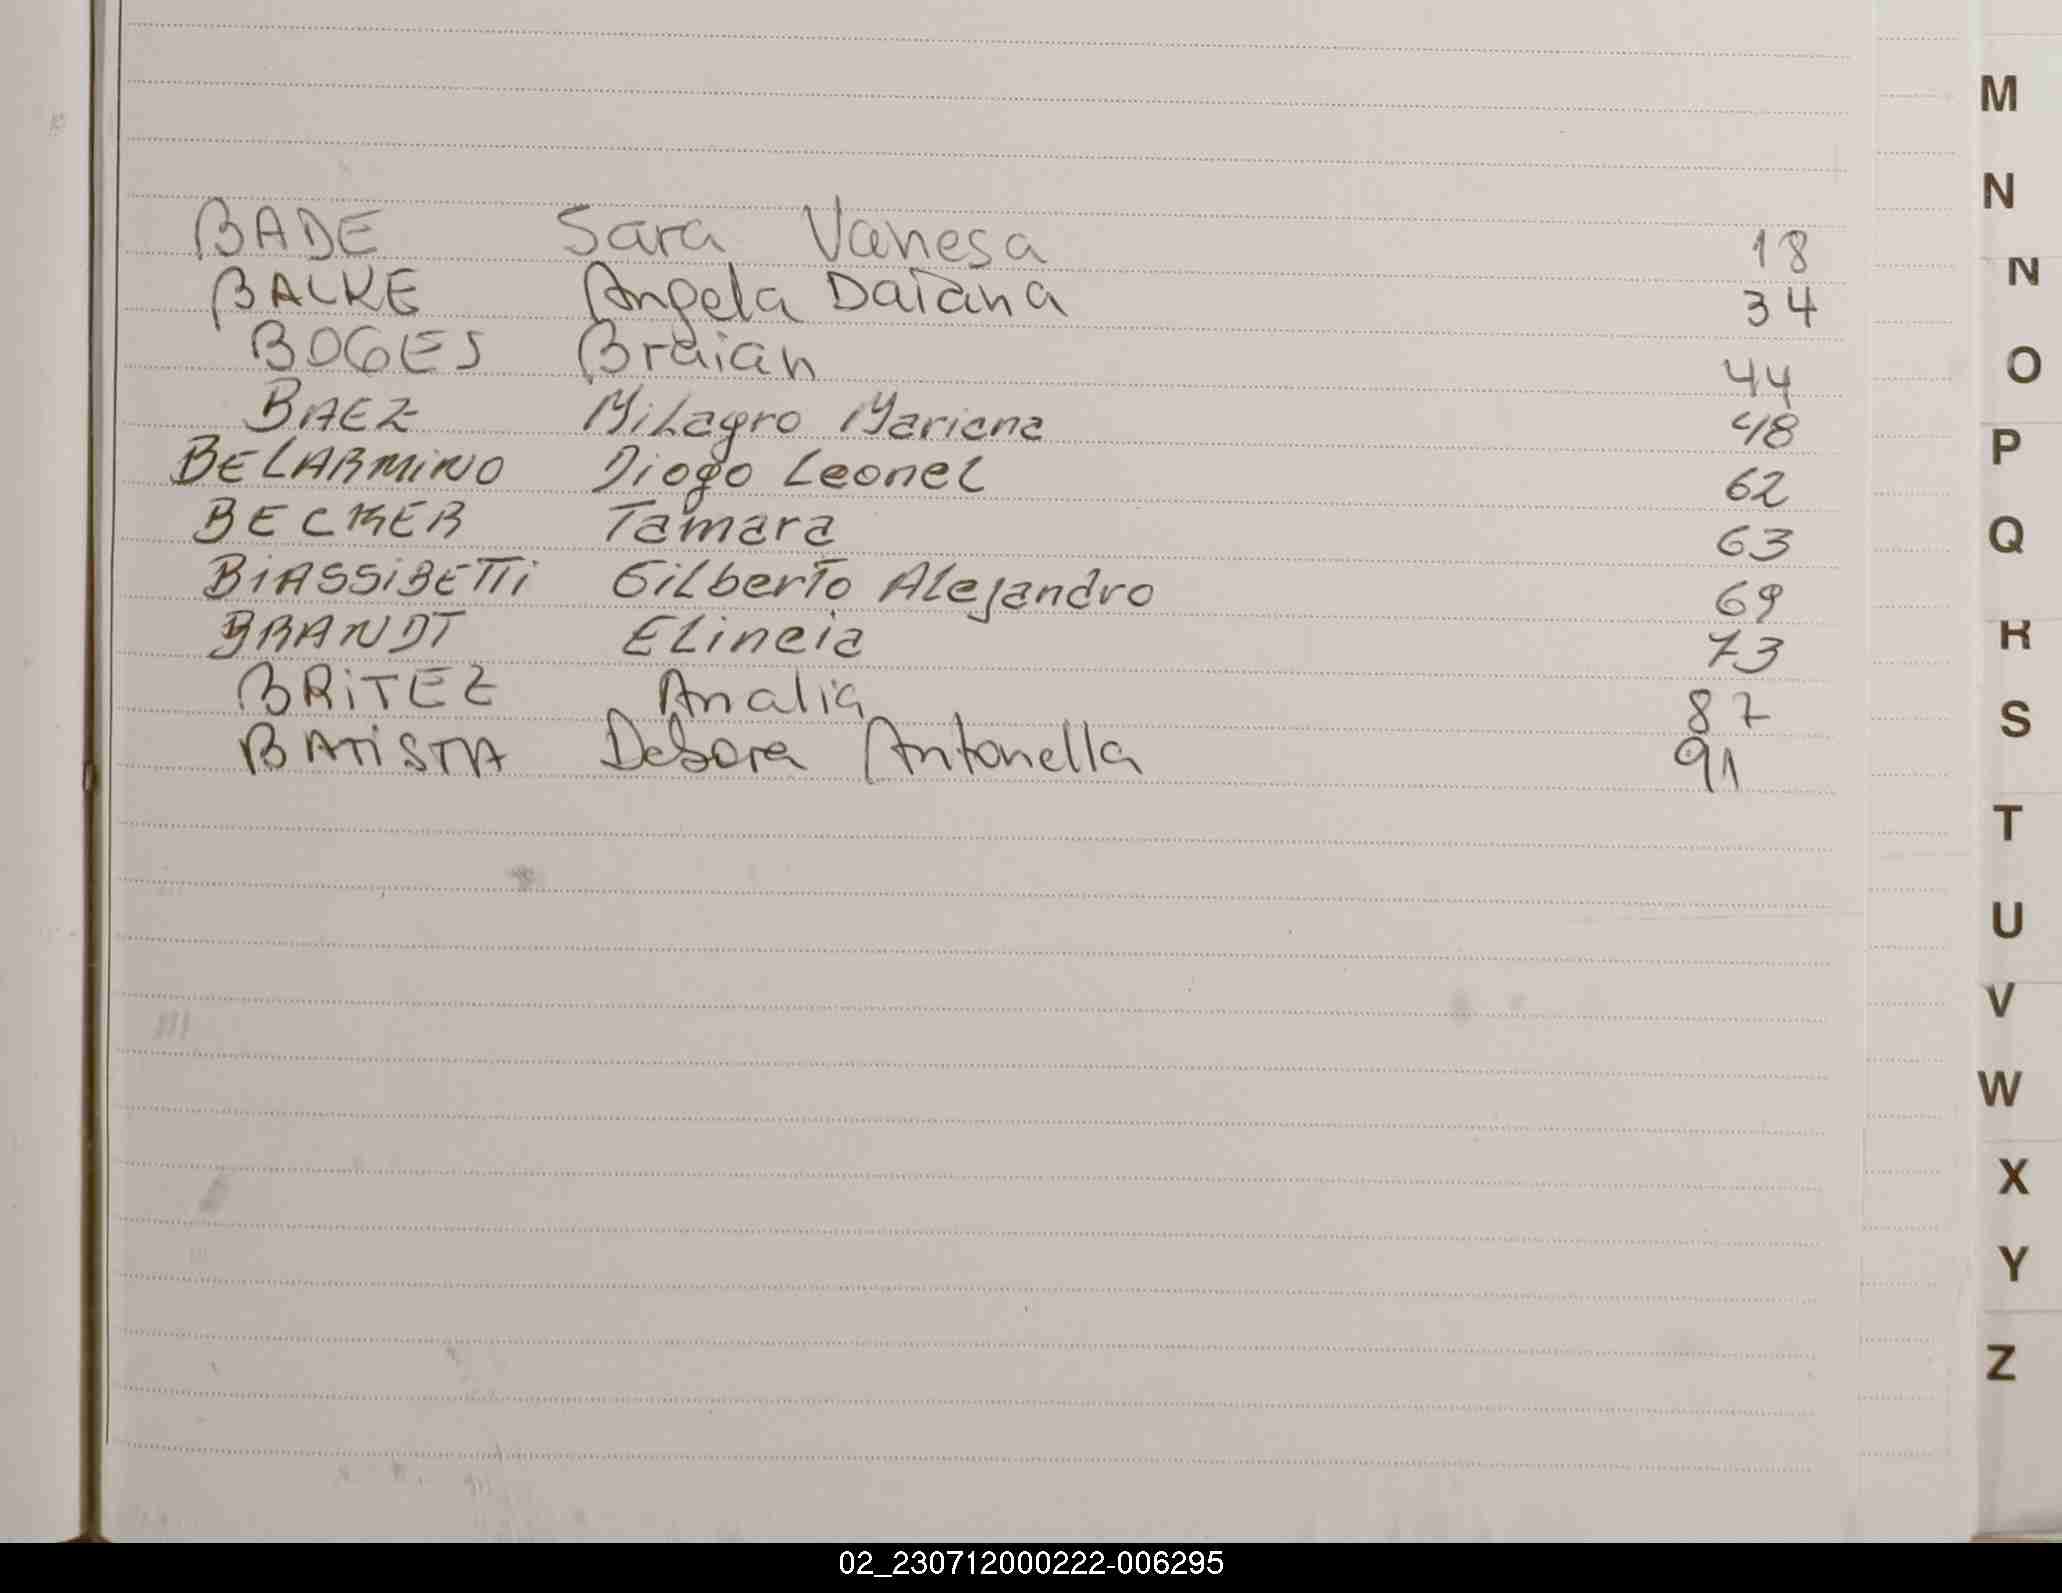 BADE Sara Vanesa 18
BALKE Angela Daiana 34
BOGES Braian 44
BAEZ Milagro Mariana 48
BELARMINO Diogo Leonel 62
BECKER Tamara 63
BIASSIBETTI Gilberto Alejandro 69
BRANDT Elineia 73
BRITEZ Analia 87
BATISTA Debora Antonella 91
M
N
N
O
P
Q
R
S
T
U
V
W
X
Y
Z
02_230712000222-006295